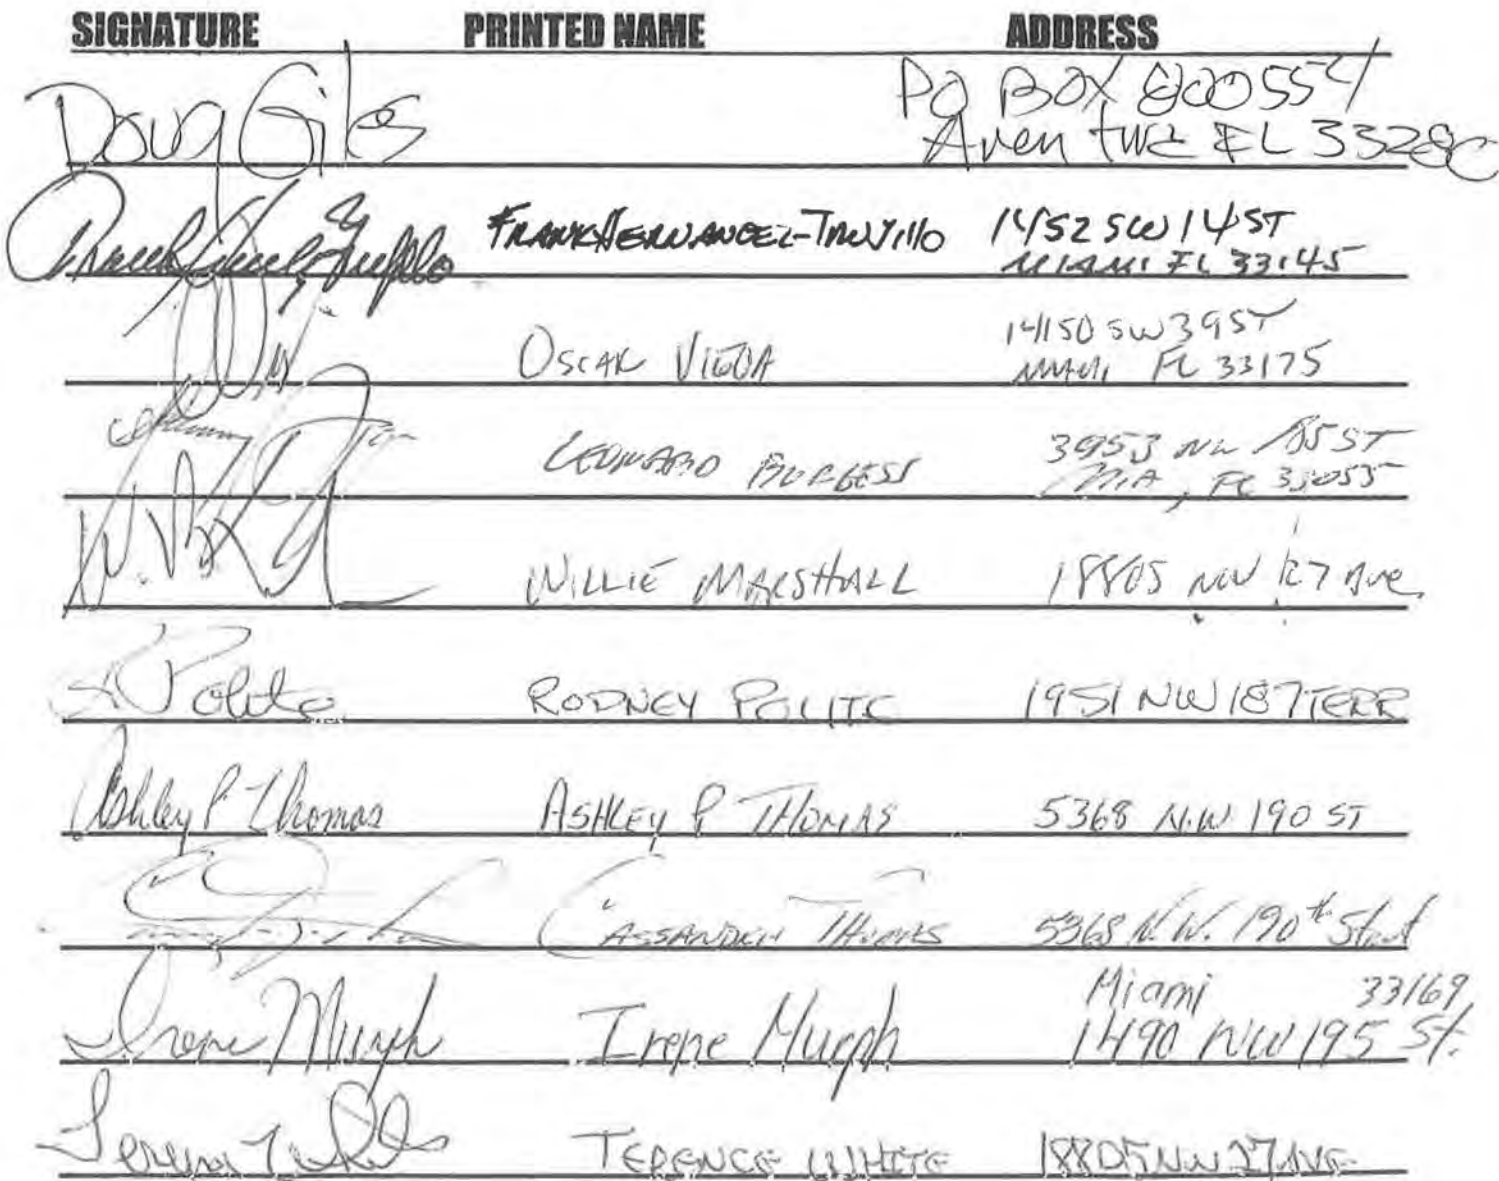 SIGNATURE PRINTED NAME ADDRESS
Doug Giles PO BOX 800554
Aventura FL 33280
FRANK HERNANDEZ-TRUJILLO 1452 SW 14 ST
MIAMI FL 33145
14150 SW 39 ST
OSCAR VIGOA MIAMI FL 33175
LEONARD BURGESS 3953 NW 185 ST
MIA, FL 33055
WILLIE MARSHALL 18805 NW 27 Ave
R Polite RODNEY POLITE 1951 NW 187 TERR
Ashley P. Thomas ASHLEY P THOMAS 5368 N.W. 190 ST
CASSANDRA THOMAS 5368 N.W. 190th Street
Miami 33169
Irene Murph Irene Murph 1490 NW 195 St.
TERENCE WHITE 18805 NW 27 AVE